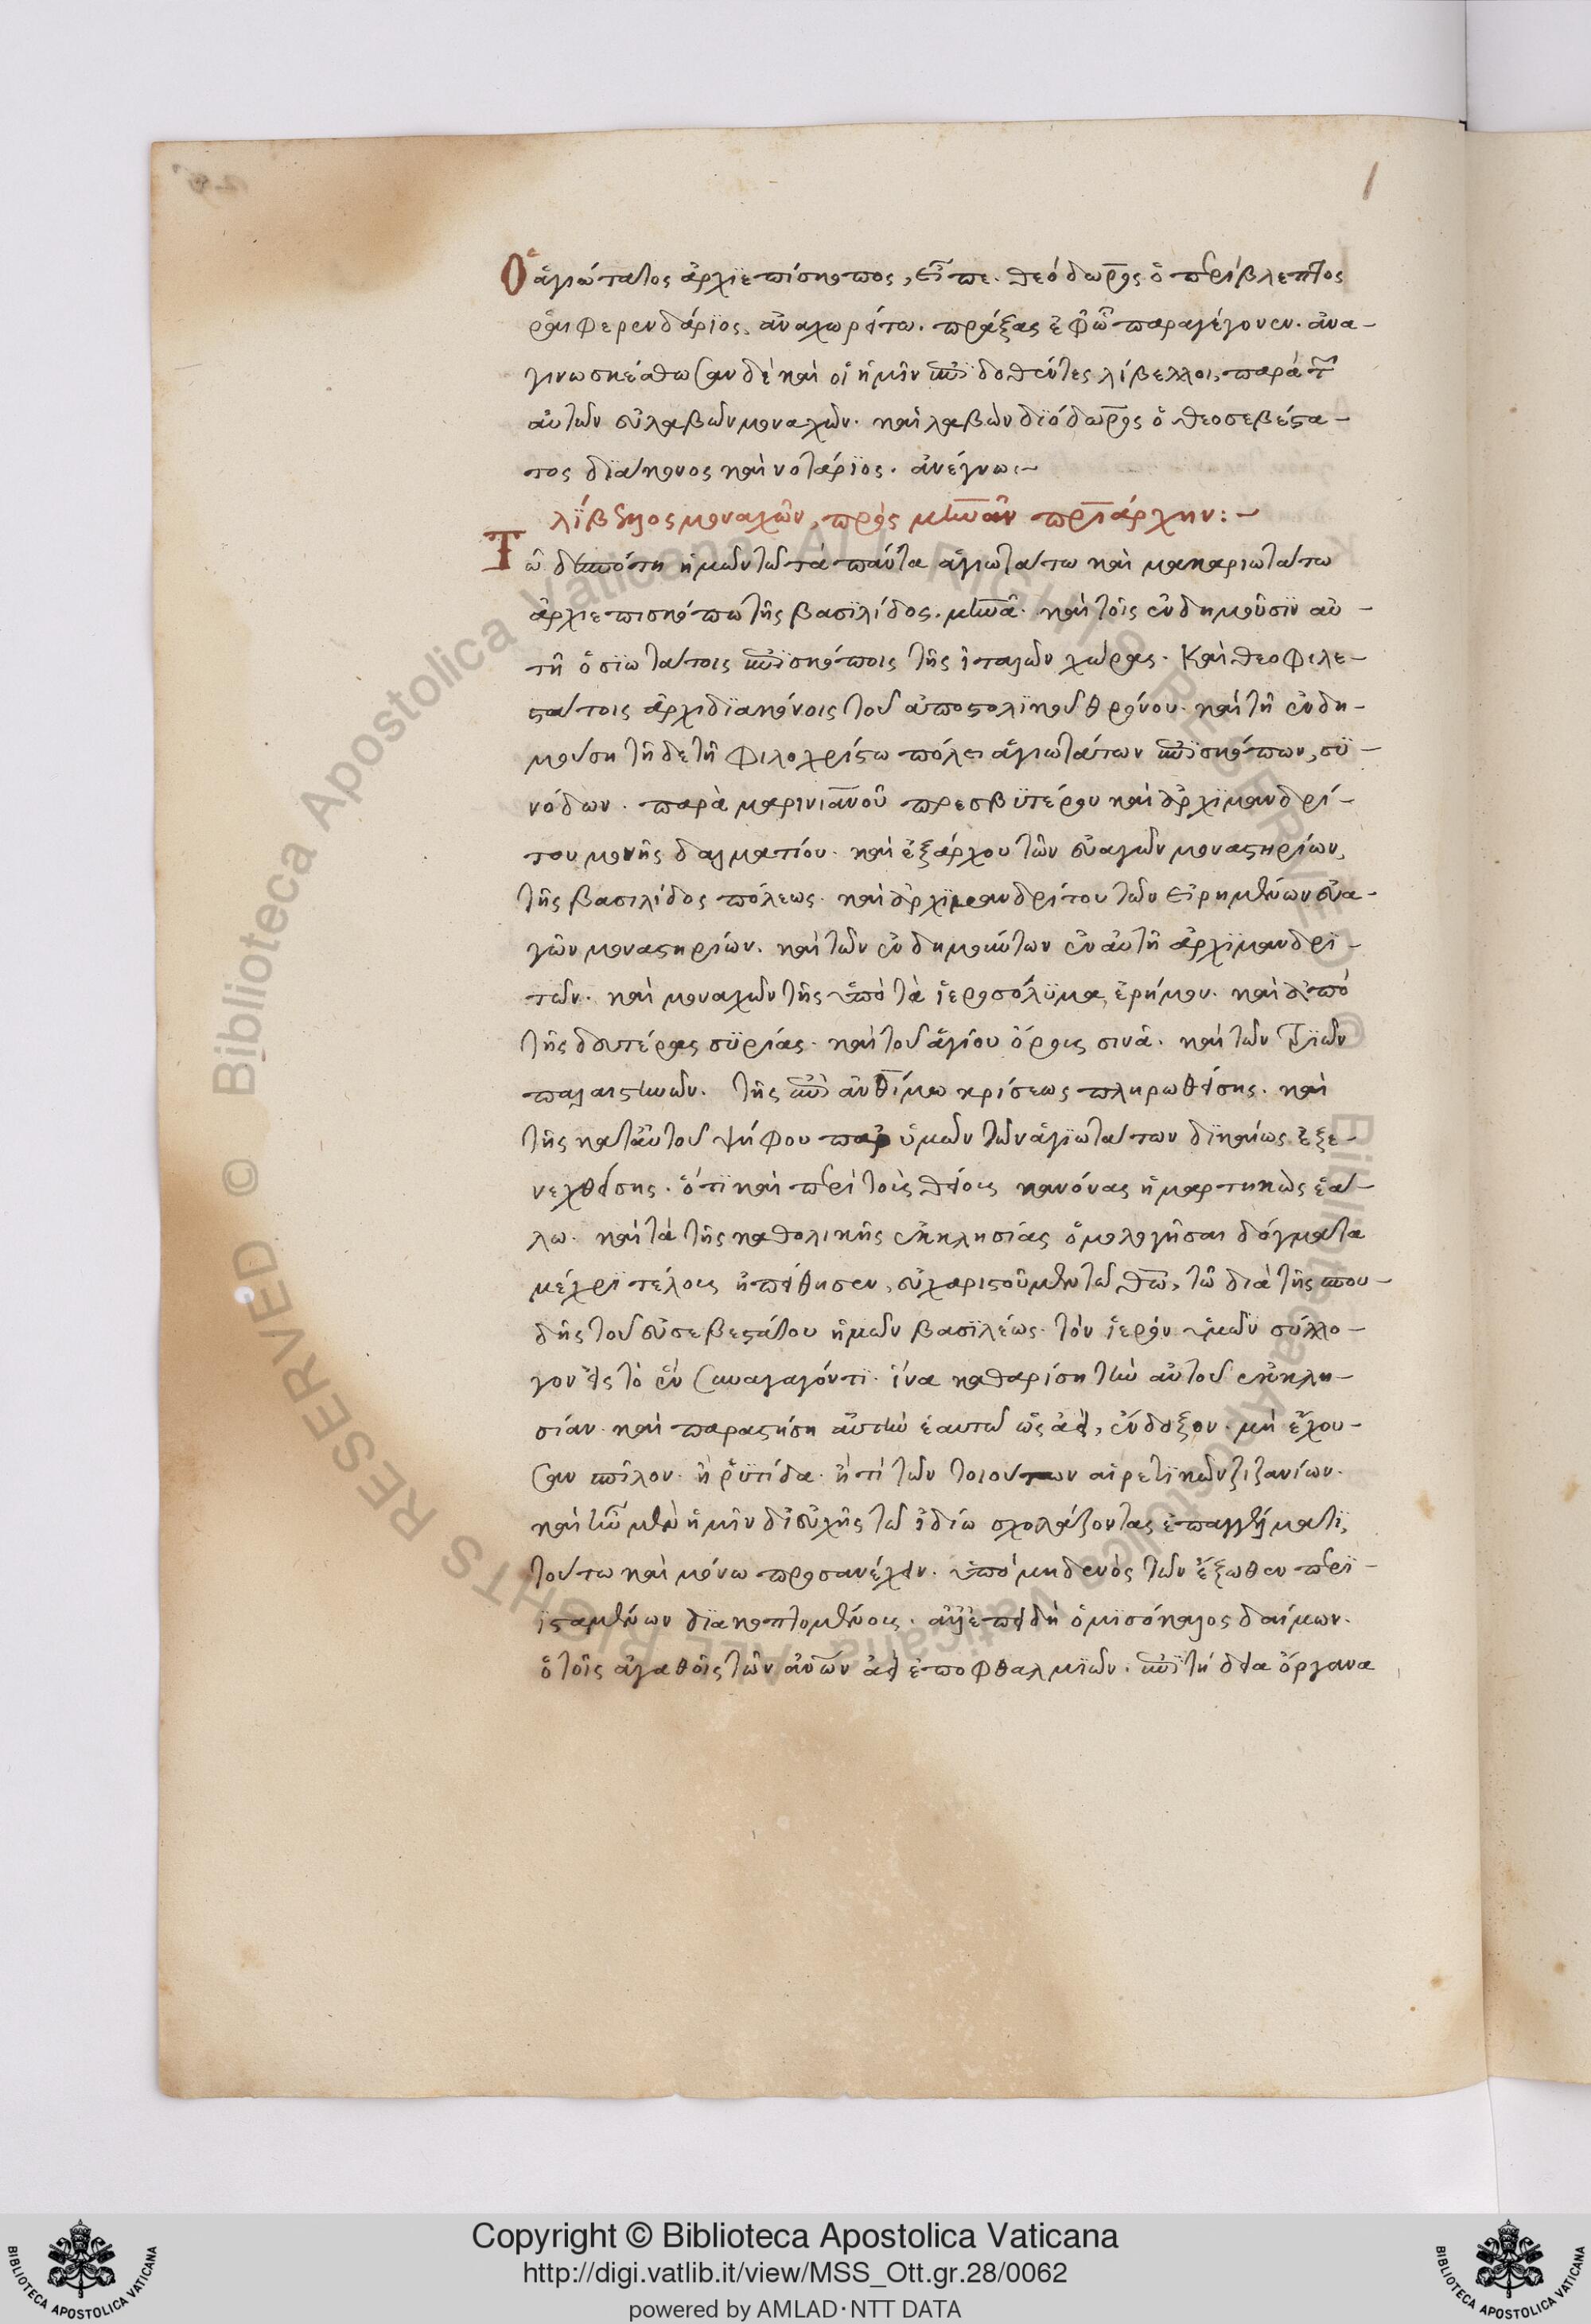 Ὁ ἁγιώτατος ἀρχϊεπίσκοπος, εἶπε. θεόδωρος ὁ περίβλεπτος
ραιφερενδάρϊος, ἀναχωρείτω. πράξας ἐφῶ παραγέγονεν. ἀνα-
γινωσκέσθωσαν δὲ καὶ οἱ ἡμῖν ἐπϊδοθέντες λίβελλοι, παρὰ τῶν
αὐτῶν εὐλαβῶν μοναχῶν. καὶ λαβὼν δϊόδωρος ὁ θεοσεβέστα-
τος δϊάκονος καὶ νοτάρϊος. ἀνέγνω:-
λϊβελος μοναχῶν, πρὸς μηνᾶν πρϊάρχην:-
Τῶ δεσπότη ἡμῶν τῶ τὰ πάντα ἁγιωτάτω καὶ μακαριωτάτω
ἀρχιεπισκόπω τῆς βασϊλίδος. μηνᾶ. καὶ τοῖς ἐνδημοῦσϊν αὐ-
τῆ ὁσϊωτάτοις ἐπϊσκόποις τῆς ἰταλῶν χώρας. Καὶ θεοφιλε-
στάτοις ἀρχιδϊακόνοις τοῦ ἀποστολϊκοῦ θρόνου. καὶ τῆ ἐνδη-
μούση τῆδε τῆ φιλοχρίστω πόλει ἁγιωτάτων ἐπϊσκόπων, σϋ-
νόδων. παρὰ μαρινιανοῦ πρεσβϋτέρου καὶ ἀρχϊμανδρί-
του μονῆς δαλματίου. καὶ ἐξάρχου τῶν εὐαγῶν μοναστηρίων,
τῆς βασιλίδος πόλεως. καὶ ἀρχϊμανδρίτου τῶν εἰρημένων εὐα-
γῶν μοναστηρίων. καὶ τῶν ἐνδημούντων ἐν αὐτῆ ἀρχϊμανδρϊ-
τῶν. καὶ μοναχῶν τῆς ὑπὸ τὰ ἱεροσόλϋμα ἐρήμου. καὶ ἀπὸ
τῆς δευτέρας σϋρίας. καὶ τοῦ ἁγίου ὄρους σινᾶ. καὶ τῶν τρϊῶν
παλαιστινῶν. τῆς ἐπὶ ἀνθίμω κρίσεως πληρωθείσης. καὶ
τῆς κατ αὐτοῦ ψήφου παρ ὑμῶν τῶν ἁγϊωτάτων δϊκαίως ἐξε-
νεχθείσης. ὅτϊ καὶ περὶ τοὺς θείους κανόνας ἡμαρτηκὼς ἑά-
λω. καὶ τὰ τῆς καθολικῆς ἐκκλησίας ὁμολογῆσαι δόγματα
μέχρϊ τέλους ἠπείθησεν, εὐχαριστοῦμεν τῶ θεῶ, τῶ διὰ τῆς σπου-
δῆς τοῦ εὐσεβεστάτου ἡμῶν βασϊλέως. τὸν ἱερὸν ὑμῶν σύλλο-
γον εἰς τὸ ἓν συναγαγόντϊ. ἵνα καθαρίση τὴν αὐτοῦ ἐκκλη-
σίαν. καὶ παραστήση αὐτὴν ἑαυτῶ ὡς ἀεὶ, ἔνδοξον. μὴ ἔχου-
σαν σπῖλον. ἢ ῥϋτίδα. ἤ τϊ τῶν τοιούτων αἱρετϊκῶν ζιζανίων.
καὶ ἦν μὲν ἡμῖν διευχῆς τῶ ἰδίω σχολάζοντας ἐπαγγέλματϊ,
τούτω καὶ μόνω προσανέχειν. ὑπὸ μηδενὸς τῶν ἔξωθεν περϊ-
ϊσταμένων δϊακοπτομένους. ἀλλ' ἐπειδὴ ὁ μισόκαλος δαίμων.
ὁ τοῖς ἀγαθοῖς τῶν ἀνθρώπων ἀεὶ ἐποφθαλμϊῶν. ἐπϊτήδεια ὄργανα
Copyright © Biblioteca Apostolica Vaticana
http://digi.vatlib.it/view/MSS_Ott.gr.28/0062
powered by AMLAD·NTT DATA